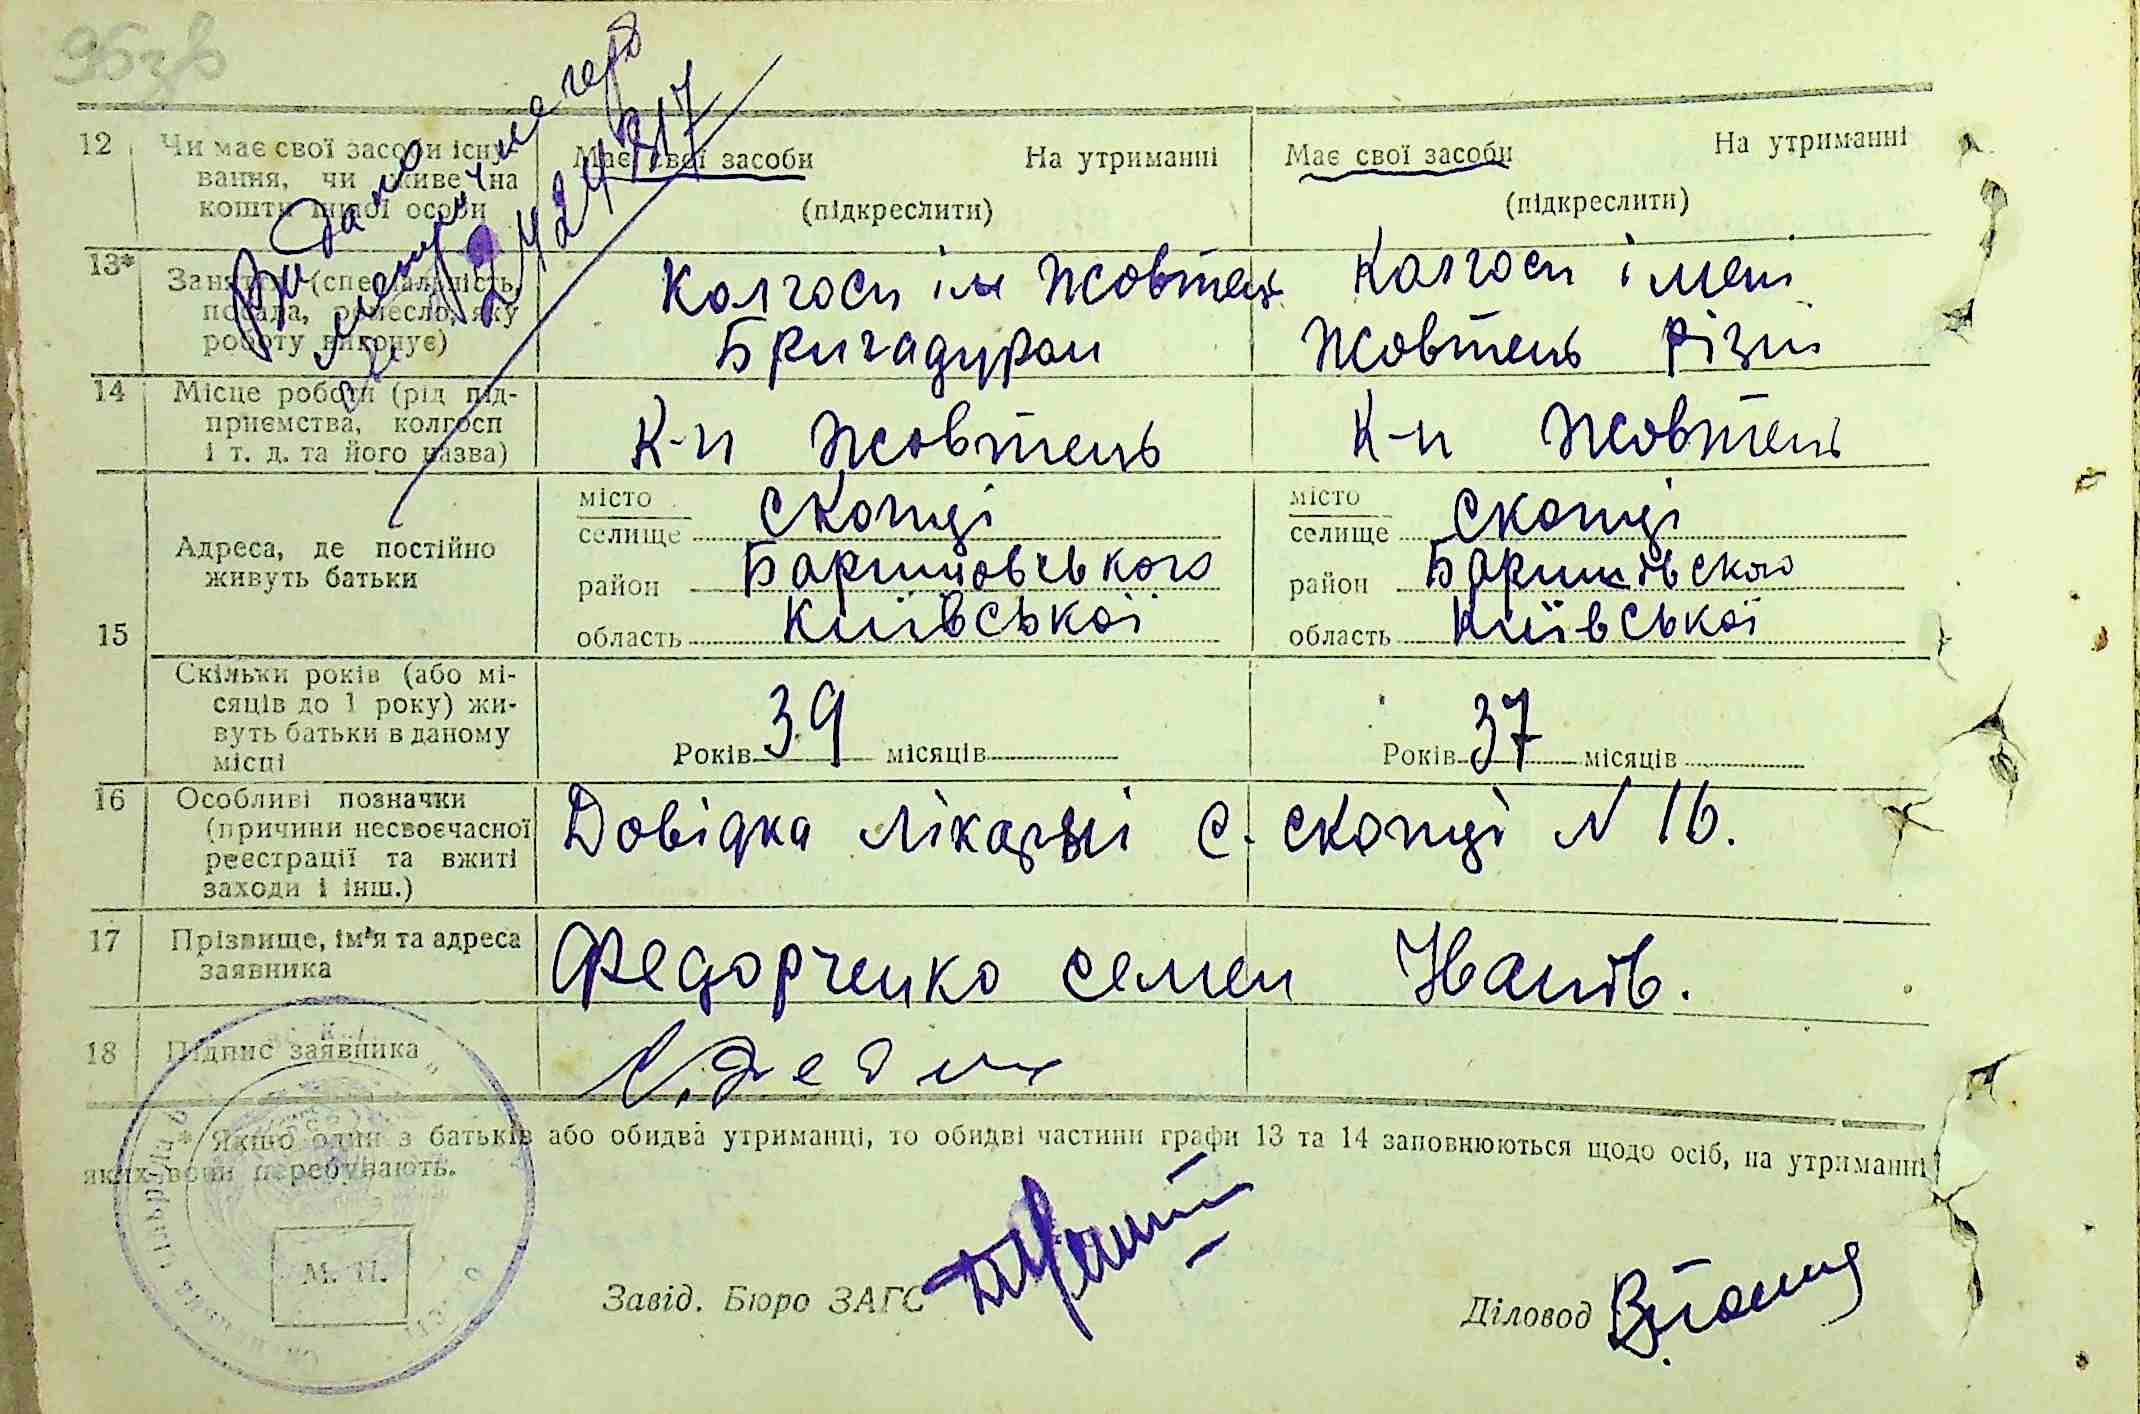 95зв
Видано
24 24 217
12 Чи має свої засоби існу- Має свої засоби На утриманні Має свої засоби На утриманні
вання, чи живе на
кошти іншої особи (підкреслити) (підкреслити)
13* Заняття (спеціальність, Колгосп ім Жовтень Колгосп імені
посада, ремесло, яку
роботу виконує) Бригадуром Жовтень різні
14 Місце роботи (рід під- К-п Жовтень К-п Жовтень
приємства, колгосп
і т. д. та його назва)
15 Адреса, де постійно
живуть батьки
місто
селище Скопці
район Баришовського
область Київської
місто
селище Скопці
район Баришівско
область Київської
Скільки років (або мі-
сяців до 1 року) жи-
вуть батьки в даному
місці
Років 39 місяців Років 37 місяців
16 Особливі позначки
(причини несвоєчасної
реєстрації та вжиті
заходи і інш.)
Довідка лікарні с. Скопці N 16.
17 Прізвище, ім'я та адреса
заявника
Федорченко Семен Іванів.
18 Підпис заявника
* Якщо один з батьків або обидва утриманці, то обидві частини графи 13 та 14 заповнюються щодо осіб, на утриманні
яких вони перебувають.
М. П.
Завід. Бюро ЗАГС
Діловод